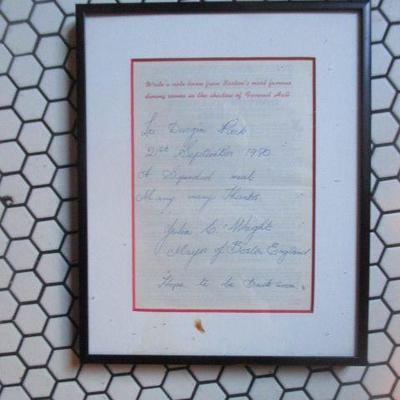 Write a note home from Boston's most famous
dining rooms in the shadow of Faneuil Hall
To Durgin Park
21st September 1980
A Splendid meal
Many many Thanks.
John C. Wright
Mayor of Boston England
Hope to be back soon.